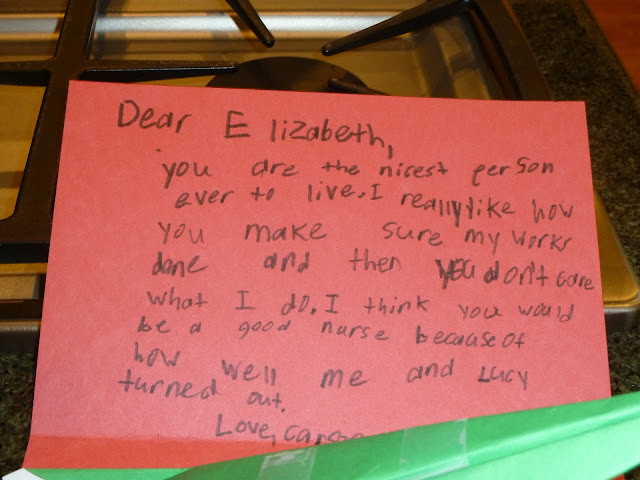 Dear Elizabeth,
you are the nicest person
ever to live. I really like how
you make sure my works
done and then you don't care
what I do. I think you would
be a good nurse because of
how well me and Lucy
turned out.
Love,